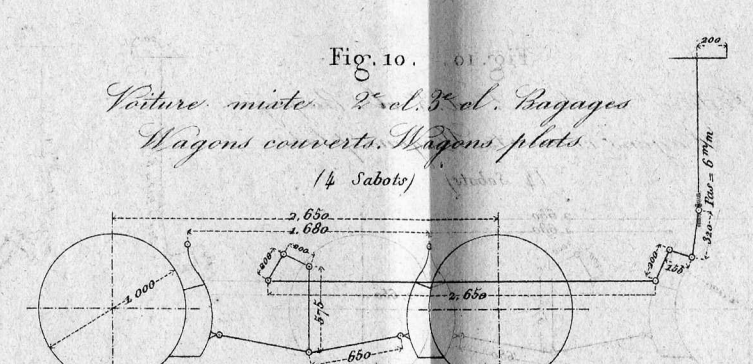 Fig. 10.
200
Voiture mixte 2e cl. 3e cl. Bagages
Wagons couverts. Wagons plats
(4 Sabots)
320 Pas = 6 m/m
2,650
1.680
200
200
200
155
1,000
575
2,650
650